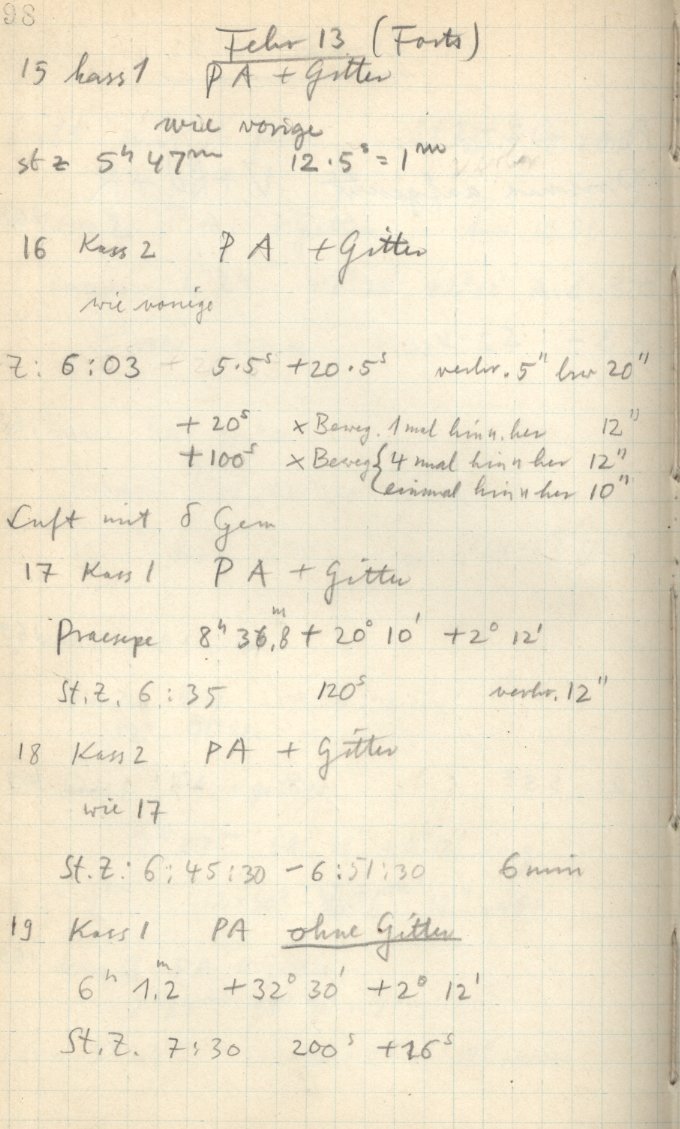 98
Febr 13 (Forts)
15 Kass 1 PA + Gitter
wie vorige
st z 5h 47m 12·5s = 1m
16 Kass 2 PA + Gitter
wie vorige
Z: 6:03 5·5s + 20·5s verbr. 5" bzw 20"
+ 20s × Beweg. 1 mal hin u. her 12"
+ 100s × Beweg { 4 mal hin u her 12"
einmal hin u her 10"
Luft mit δ Gem
17 Kass 1 PA + Gitter
Praesepe 8h 36,8m + 20° 10' + 2° 12'
St.Z. 6:35 120s verbr. 12"
18 Kass 2 PA + Gitter
wie 17
St.Z: 6:45:30 – 6:51:30 6 min
19 Kass 1 PA ohne Gitter
6h 1.2m + 32° 30' + 2° 12'
St.Z. 7:30 200s + 16s